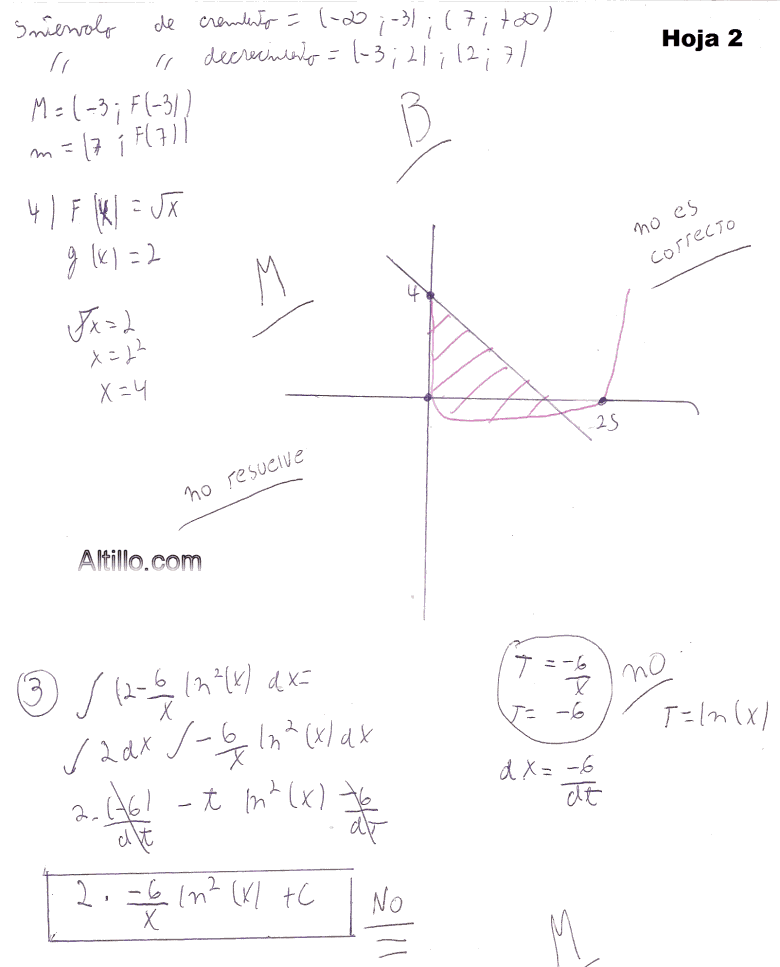 Intervalo de crecimiento = (-∞ ; -3) ; (7 ; +∞)
Hoja 2
" " decrecimiento = (-3 ; 2) ; (2 ; 7)
M = (-3 ; F(-3))
m = (7 ; F(7))
B
4) F(x) = √x
g(x) = 2
M
√x = 2
x = 2²
x = 4
no es
correcto
4
25
no resuelve
Altillo.com
③ ∫ (2 - 6/x ln²(x) dx =
∫ 2dx ∫ - 6/x ln²(x) dx
2 · (-6)/dt - t ln²(x) -6/dt
2 · -6/x ln²(x) + C
NO
T = -6/x
T = -6
NO
T = ln(x)
dx = -6/dt
M